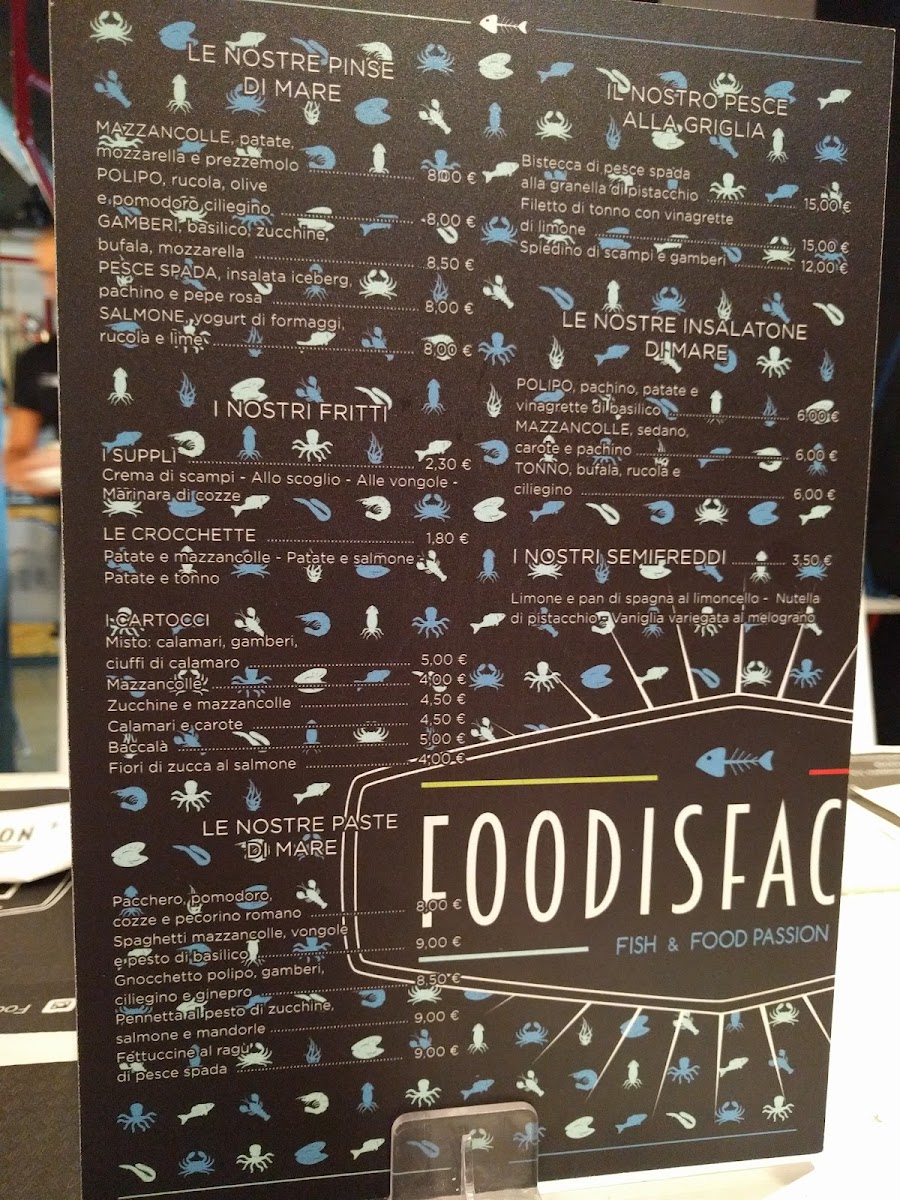 LE NOSTRE PINSE
DI MARE
MAZZANCOLLE, patate,
mozzarella e prezzemolo 8,00 €
POLIPO, rucola, olive
e pomodoro ciliegino 8,00 €
GAMBERI, basilico, zucchine,
bufala, mozzarella 8,50 €
PESCE SPADA, insalata iceberg,
pachino e pepe rosa 8,00 €
SALMONE, yogurt di formaggi,
rucola e lime 8,00 €
I NOSTRI FRITTI
I SUPPLÌ 2,30 €
Crema di scampi - Allo scoglio - Alle vongole -
Marinara di cozze
LE CROCCHETTE 1,80 €
Patate e mazzancolle - Patate e salmone -
Patate e tonno
I CARTOCCI
Misto: calamari, gamberi,
ciuffi di calamaro 5,00 €
Mazzancolle 4,00 €
Zucchine e mazzancolle 4,50 €
Calamari e carote 4,50 €
Baccalà 5,00 €
Fiori di zucca al salmone 4,00 €
LE NOSTRE PASTE
DI MARE
Pacchero, pomodoro,
cozze e pecorino romano 8,00 €
Spaghetti mazzancolle, vongole
e pesto di basilico 9,00 €
Gnocchetto polipo, gamberi,
ciliegino e ginepro 8,50 €
Pennetta al pesto di zucchine,
salmone e mandorle 9,00 €
Fettuccine al ragù
di pesce spada 9,00 €
IL NOSTRO PESCE
ALLA GRIGLIA
Bistecca di pesce spada
alla granella di pistacchio 15,00 €
Filetto di tonno con vinagrette
di limone 15,00 €
Spiedino di scampi e gamberi 12,00 €
LE NOSTRE INSALATONE
DI MARE
POLIPO, pachino, patate e
vinagrette di basilico 6,00 €
MAZZANCOLLE, sedano,
carote e pachino 6,00 €
TONNO, bufala, rucola e
ciliegino 6,00 €
I NOSTRI SEMIFREDDI 3,50 €
Limone e pan di spagna al limoncello - Nutella
di pistacchio - Vaniglia variegata al melograno
FOODISFAC
FISH & FOOD PASSION
ON
Foo